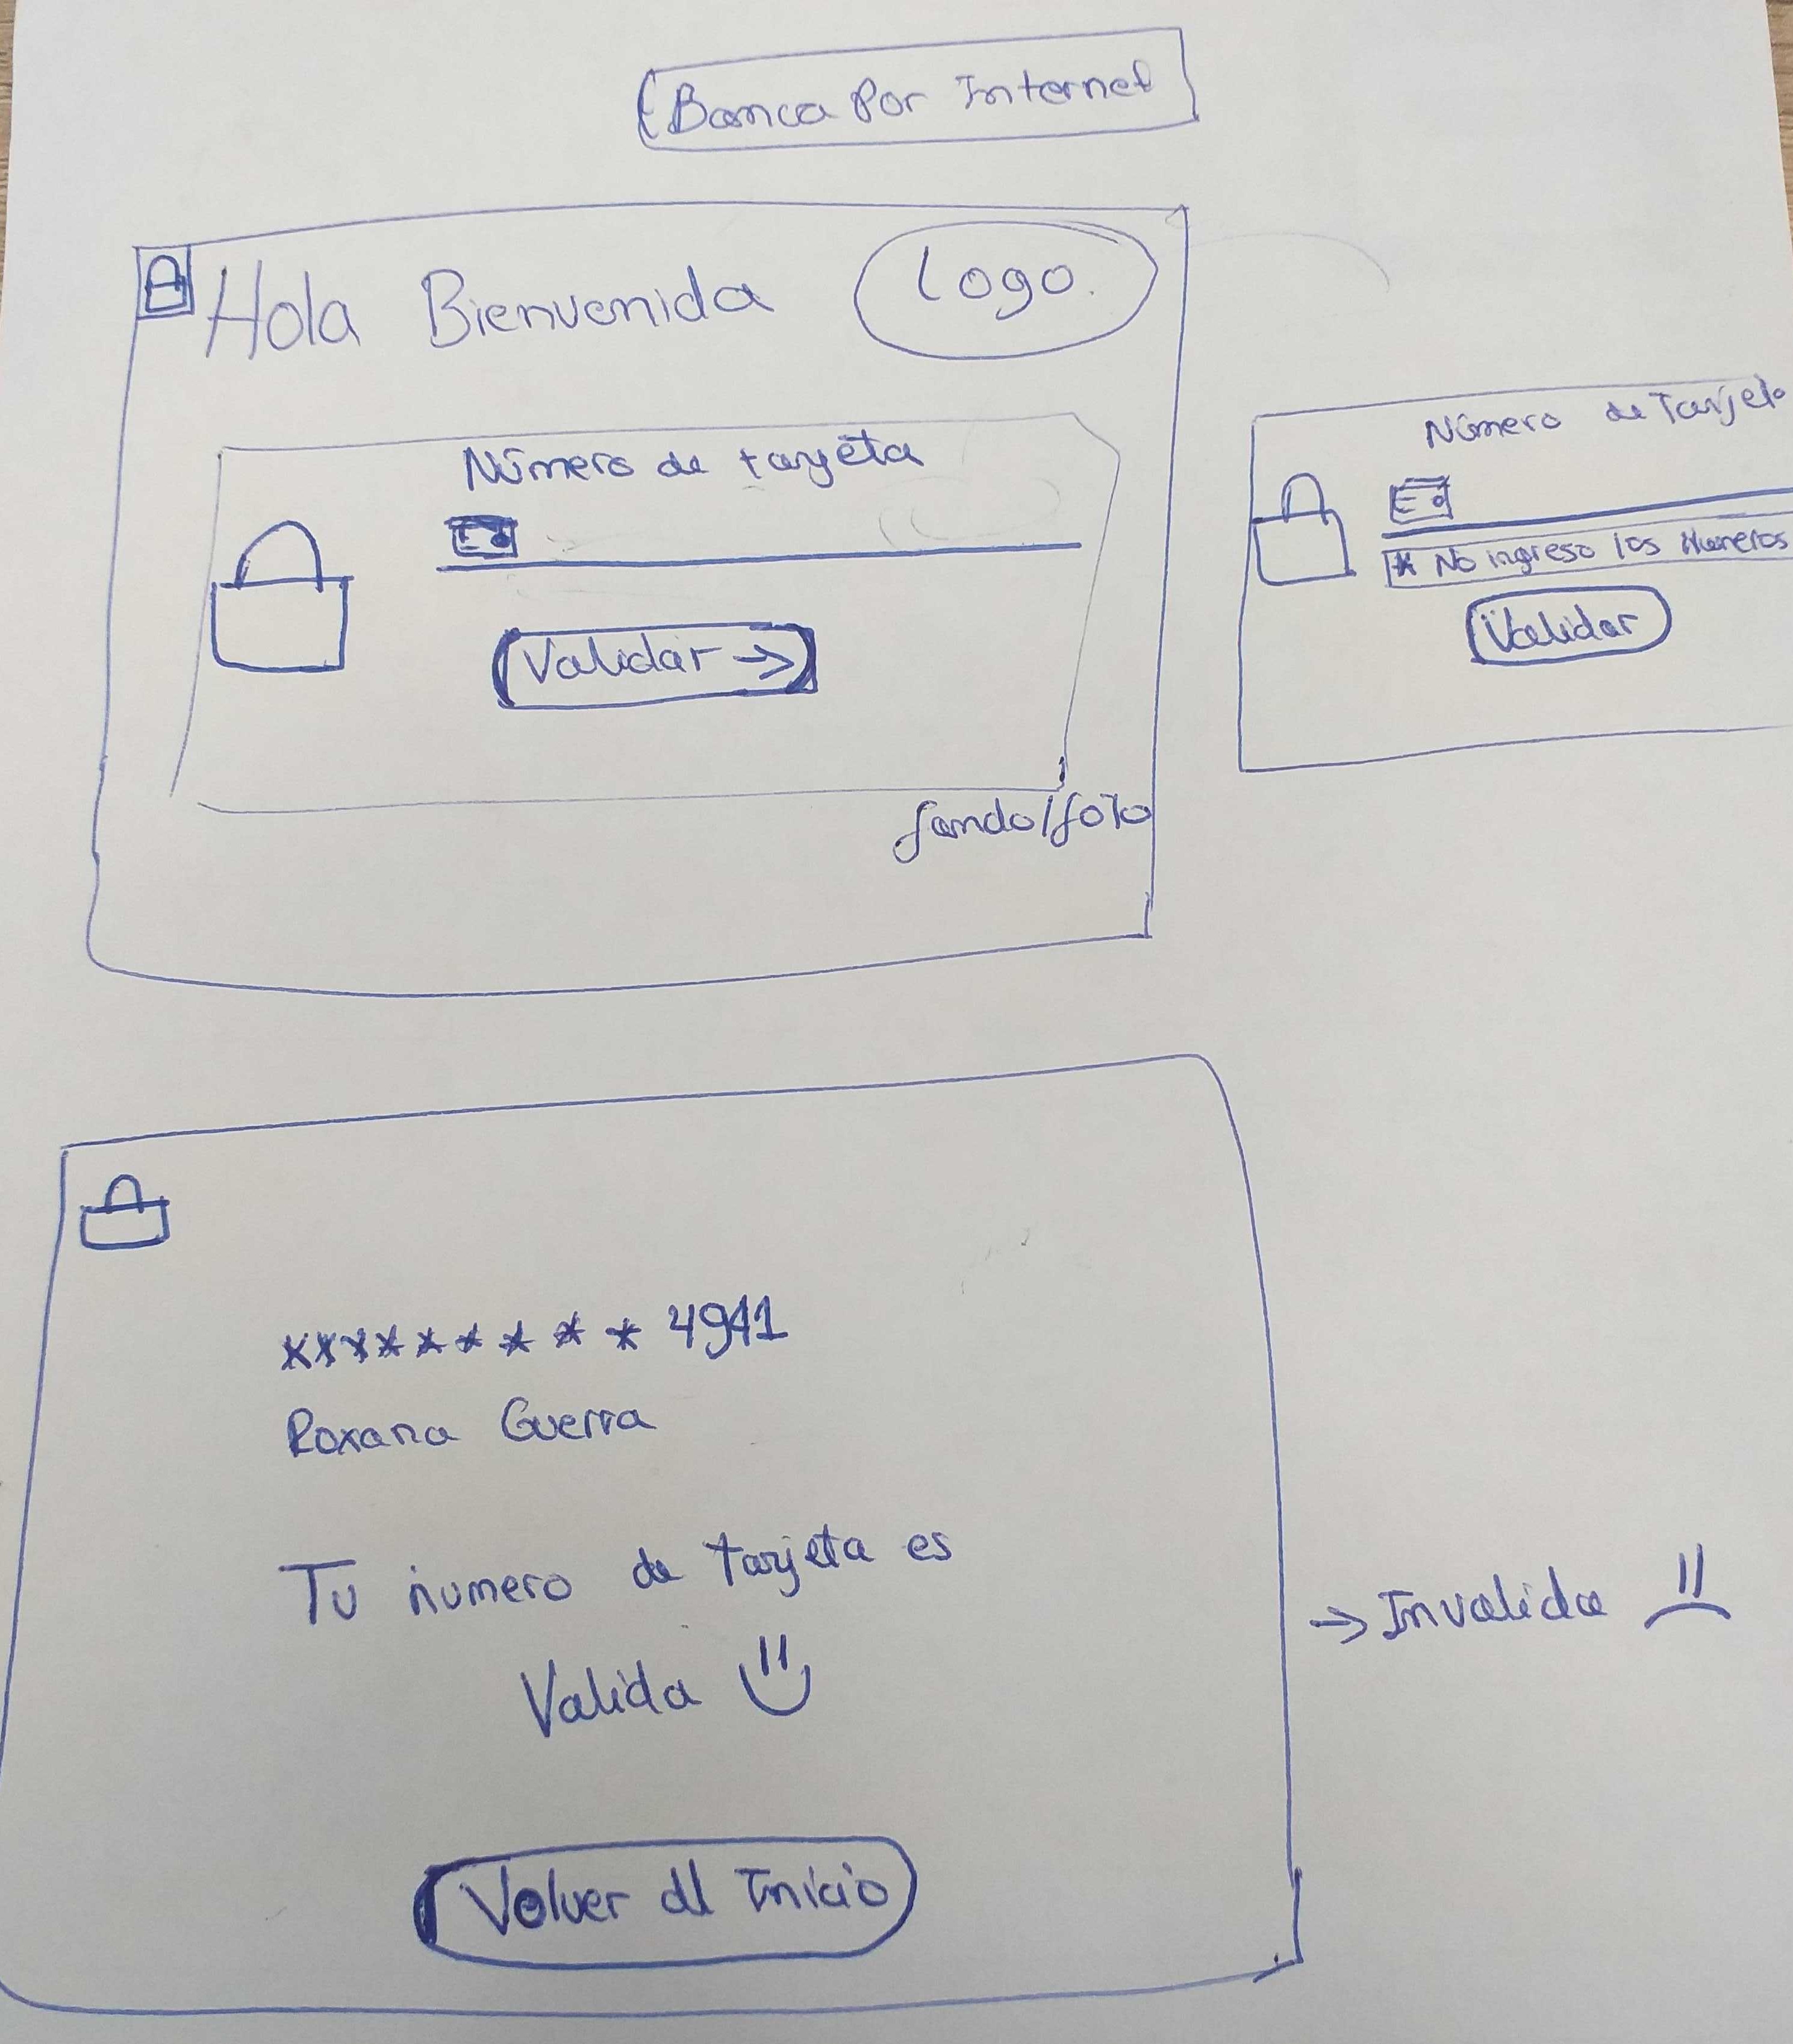 Banca Por Internet
Hola Bienvenida
Logo.
Número de tarjeta
Validar →
fondo/foto
Número de Tarjeta
* No ingreso los Numeros
Validar
********* 4941
Roxana Guerra
Tu numero de tarjeta es
Valida
→ Invalida
Volver al Inicio